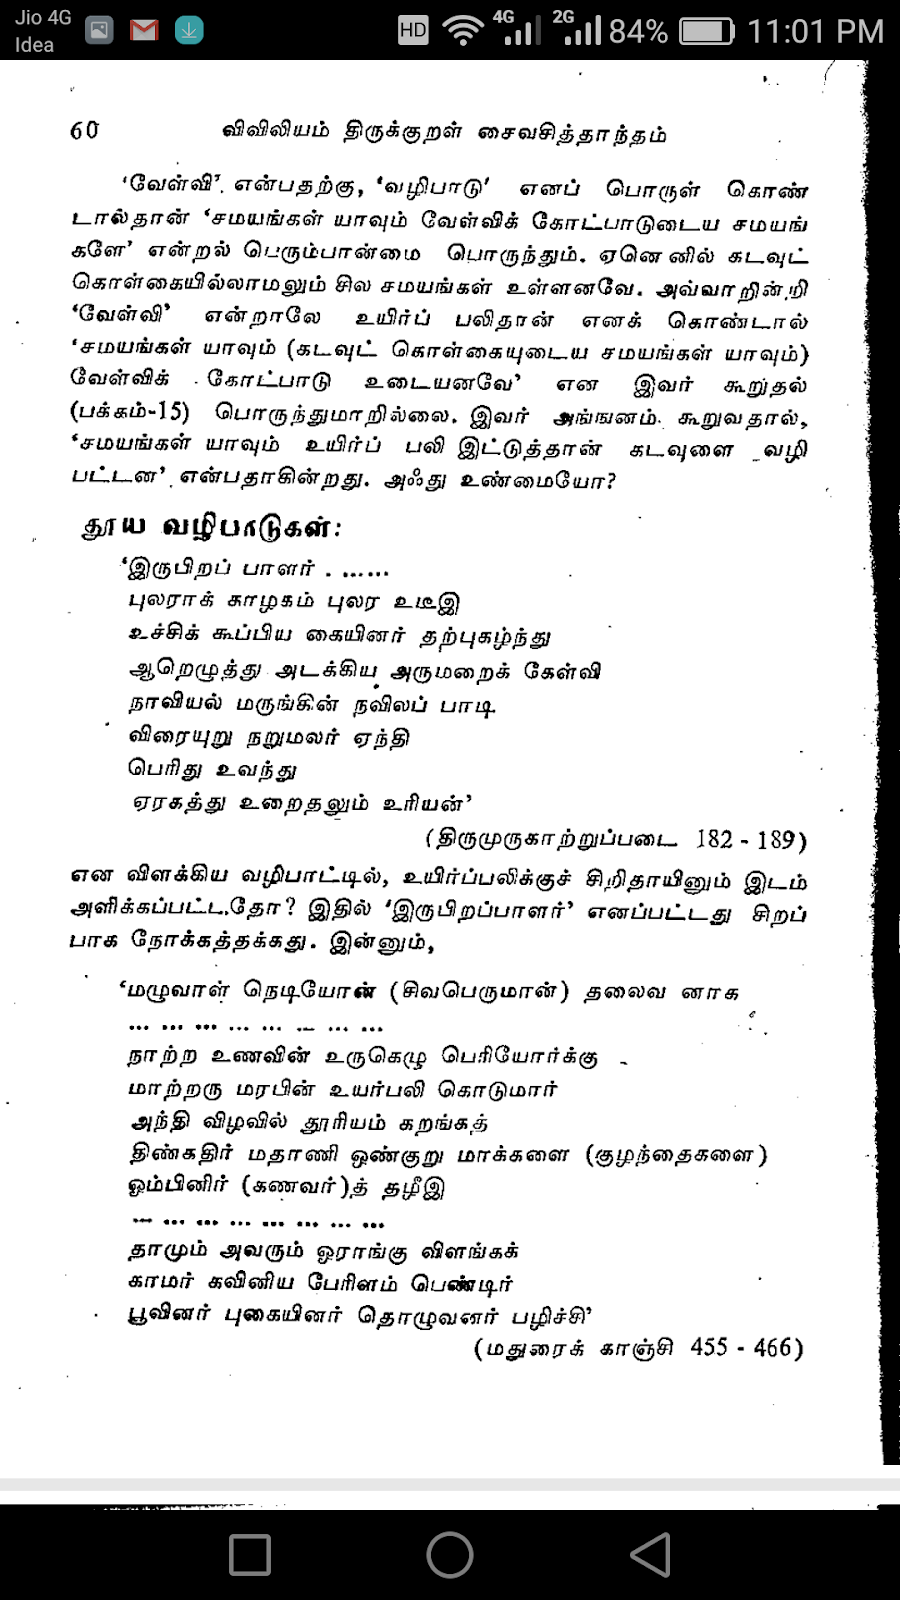 Jio 4G
Idea
HD 4G 2G 84% 11:01 PM
60 விவிலியம் திருக்குறள் சைவசித்தாந்தம்
‘வேள்வி’ என்பதற்கு, ‘வழிபாடு’ எனப் பொருள் கொண்
டால்தான் ‘சமயங்கள் யாவும் வேள்விக் கோட்பாடுடைய சமயங்
களே’ என்றல் பெரும்பான்மை பொருந்தும். ஏனெனில் கடவுட்
கொள்கையில்லாமலும் சில சமயங்கள் உள்ளனவே. அவ்வாறின்றி
‘வேள்வி’ என்றாலே உயிர்ப் பலிதான் எனக் கொண்டால்
‘சமயங்கள் யாவும் (கடவுட் கொள்கையுடைய சமயங்கள் யாவும்)
வேள்விக் கோட்பாடு உடையனவே’ என இவர் கூறுதல்
(பக்கம்-15) பொருந்துமாறில்லை. இவர் அங்ஙனம் கூறுவதால்,
‘சமயங்கள் யாவும் உயிர்ப் பலி இட்டுத்தான் கடவுளை வழி
பட்டன’ என்பதாகின்றது. அஃது உண்மையோ?
தூய வழிபாடுகள்:
‘இருபிறப் பாளர் . ......
புலராக் காழகம் புலர உடீஇ
உச்சிக் கூப்பிய கையினர் தற்புகழ்ந்து
ஆறெழுத்து அடக்கிய அருமறைக் கேள்வி
நாவியல் மருங்கின் நவிலப் பாடி
விரையுறு நறுமலர் ஏந்தி
பெரிது உவந்து
ஏரகத்து உறைதலும் உரியன்’
(திருமுருகாற்றுப்படை 182 - 189)
என விளக்கிய வழிபாட்டில், உயிர்ப்பலிக்குச் சிறிதாயினும் இடம்
அளிக்கப்பட்டதோ? இதில் ‘இருபிறப்பாளர்’ எனப்பட்டது சிறப்
பாக நோக்கத்தக்கது. இன்னும்,
‘மழுவாள் நெடியோன் (சிவபெருமான்) தலைவ னாக
... ... ... ... ... ... ... ...
நாற்ற உணவின் உருகெழு பெரியோர்க்கு
மாற்றரு மரபின் உயர்பலி கொடுமார்
அந்தி விழவில் தூரியம் கறங்கத்
திண்கதிர் மதாணி ஒண்குறு மாக்களை (குழந்தைகளை)
ஓம்பினிர் (கணவர்)த் தழீஇ
... ... ... ... ... ... ... ...
தாமும் அவரும் ஓராங்கு விளங்கக்
காமர் கவினிய பேரிளம் பெண்டிர்
பூவினர் புகையினர் தொழுவனர் பழிச்சி’
(மதுரைக் காஞ்சி 455 - 466)